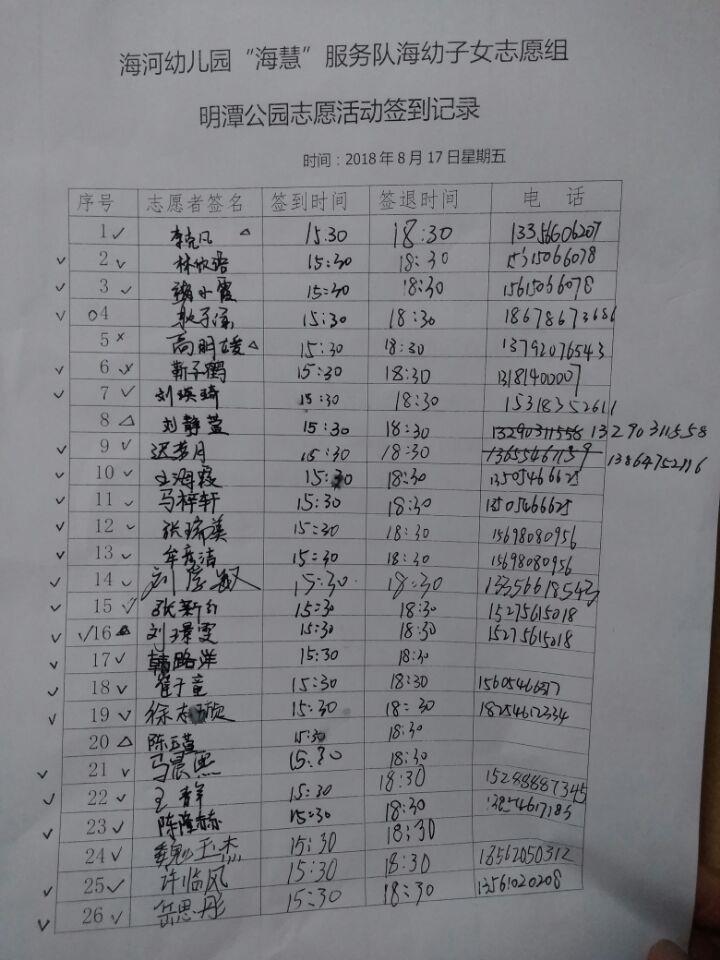 海河幼儿园“海慧”服务队海幼子女志愿组
明潭公园志愿活动签到记录
时间：2018年8月17日星期五
序号 志愿者签名 签到时间 签退时间 电 话
1 李克凡 15:30 18:30 13356606207
2 林欣语 15:30 18:30 15615066078
3 小霞 15:30 18:30 15615066078
4 15:30 18:30 18678673686
5 高明媛 15:30 18:30 13792076543
6 靳子鹤 15:30 18:30 13181400007
7 刘瑛琦 15:30 18:30 15318352611
8 刘静萱 15:30 18:30 13290311558 13290311558
9 迟若月 15:30 18:30 13655467159 13864752116
10 王海霞 15:30 18:30 13505466625
11 马梓轩 15:30 18:30 13505466625
12 张瑞英 15:30 18:30 15698080956
13 牟彦洁 15:30 18:30 15698080956
14 刘彦敏 15:30 18:30 13356618543
15 张新 15:30 18:30 15275615018
16 刘璟雯 15:30 18:30 15275615018
17 韩路洋 15:30 18:30
18 崔子童 15:30 18:30 15605466517
19 徐志璇 15:30 18:30 18254612334
20 陈玉萱 15:30 18:30
21 马晨熙 15:30 18:30
22 王群 15:30 18:30 15288887345
23 陈隆赫 15:30 18:30 13854617183
24 魏玉杰 15:30 18:30 13562050312
25 许临风 15:30 18:30 13561020208
26 岳思彤 15:30 18:30